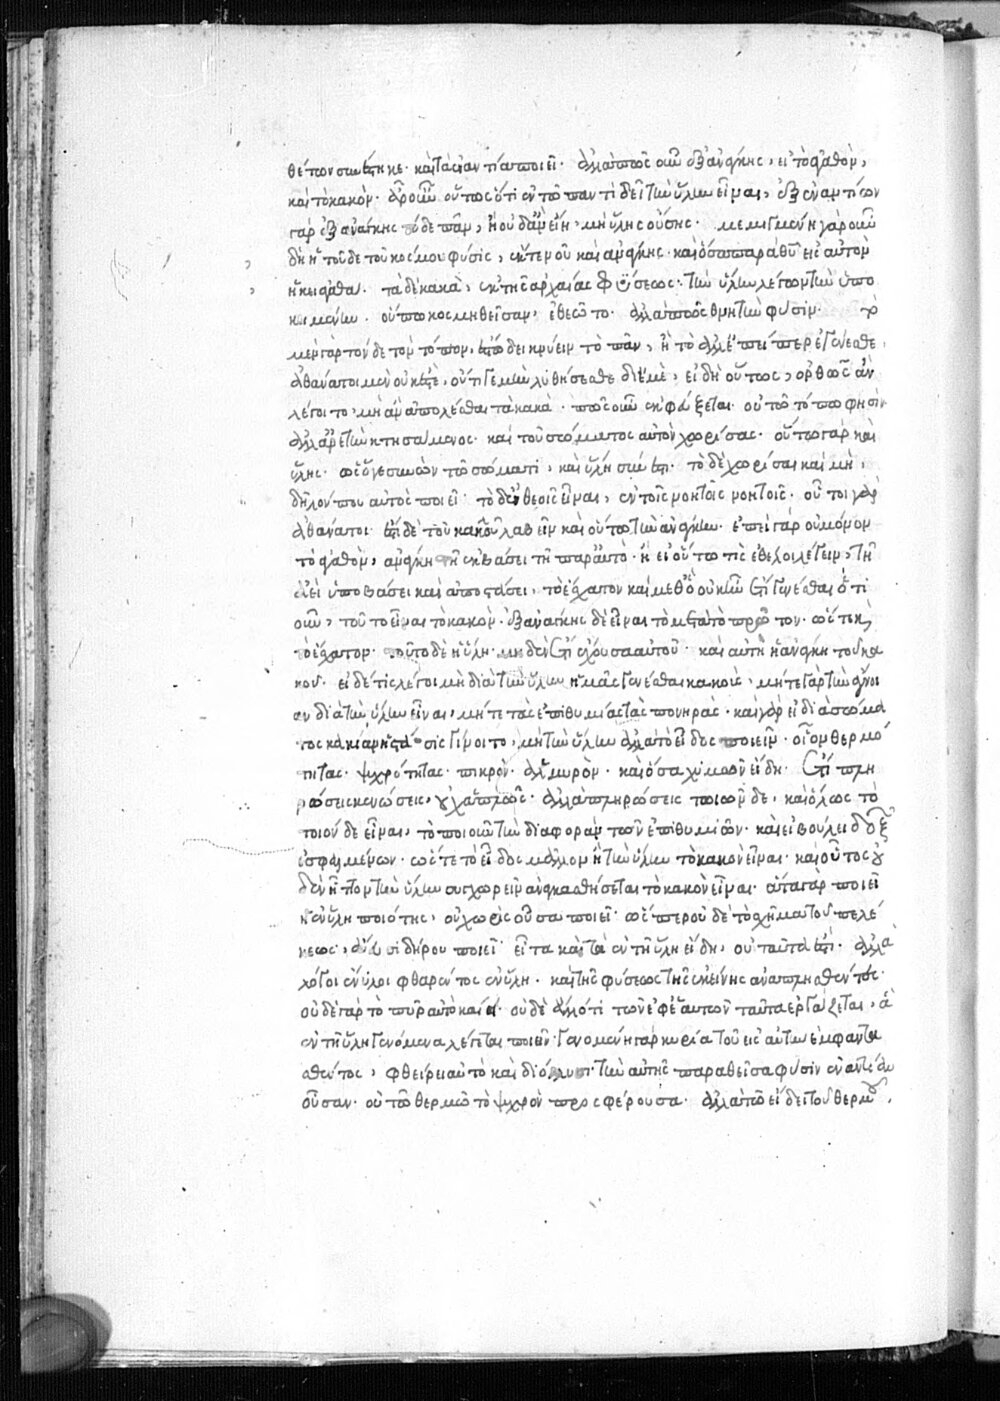 θέτων συνέστηκε· καὶ τἀναντία ποιεῖ· ἀλλὰ πῶς οὖν ἐξ ἀνάγκης, εἰ τὸ ἀγαθὸν,
καὶ τὸ κακόν· ἆρ' οὖν οὕτως ὅτι ἐν τῷ παντὶ δεῖ τὴν ὕλην εἶναι, ἐξ ἐναντίων
γὰρ ἐξ ἀνάγκης τόδε πᾶν, ἢ οὐδ' ἂν εἴη, μὴ ὕλης οὔσης· μεμιγμένη γὰρ οὖν
δὴ ἡ τοῦδε τοῦ κόσμου φύσις, ἔκ τε νοῦ καὶ ἀνάγκης· καὶ ὅσα παρὰ θεοῦ εἰς αὐτὸν
ἥκει ἀγαθά· τὰ δὲ κακὰ, ἐκ τῆς ἀρχαίας φύσεως· τὴν ὕλην λέγων τὴν ὑπο
κειμένην· οὔπω κοσμηθεῖσαν, εἰ θεῷτο· ἀλλὰ πῶς θνητὴν φύσιν· τὸ
μὲν γὰρ τόνδε τὸν τόπον, ἔστω δεικνύειν τὸ πᾶν, ἢ τὸ ἀλλ' ἐπείπερ ἐγένεσθε,
ἀθάνατοι μὲν οὐκ ἐστὲ, οὔτι γε μὴν λυθήσεσθε δι' ἐμὲ, εἰ δὴ οὕτως, ὀρθῶς ἂν
λέγοιτο, μὴ ἂν ἀπολέσθαι τὰ κακά· πῶς οὖν ἐκφεύξεται· οὐ τῷ τόπῳ φησὶν·
ἀλλ' ἀρετὴν κτησάμενος· καὶ τοῦ σώματος αὐτὸν χωρίσας· οὕτω γὰρ καὶ
ὕλης· ὡς ὅγε συνὼν τῷ σώματι, καὶ ὕλῃ σύνεστι· τὸ δὲ χωρίσαι καὶ μὴ,
δῆλον που αὐτὸς ποιεῖ· τὸ δ' ἐν θεοῖς εἶναι, ἐν τοῖς νοητοῖς νοητοῖς· οὗτοι γὰρ
ἀθάνατοι· ἔστι δὲ τοῦ κακοῦ λαβεῖν καὶ οὕτω τὴν ἀνάγκην· ἐπεὶ γὰρ οὐ μόνον
τὸ ἀγαθὸν, ἀνάγκη τῇ ἐκβάσει τῇ παρ' αὐτὸ· ἢ εἰ οὕτω τις ἐθέλοι λέγειν, τῇ
ἀεὶ ὑποβάσει καὶ ἀποστάσει, τὸ ἔσχατον καὶ μεθ' ὃ οὐκ ἦν ἔτι γενέσθαι ὁτι
οῦν, τοῦτο εἶναι τὸ κακόν· ἐξ ἀνάγκης δὲ εἶναι τὸ μετὰ τὸ πρῶτον· ὥστε καὶ
τὸ ἔσχατον· τοῦτο δὲ ἡ ὕλη· μηδὲν ἔτι ἔχουσα αὐτοῦ· καὶ αὕτη ἡ ἀνάγκη τοῦ κα
κοῦ· εἰ δέ τις λέγοι μὴ διὰ τὴν ὕλην ἡμᾶς γενέσθαι κακοὺς, μήτε γὰρ τὴν ἄγνοι
αν διὰ τὴν ὕλην εἶναι, μήτε τὰς ἐπιθυμίας τὰς πονηράς· καὶ γὰρ εἰ διὰ σώμα
τος κακίαν ἡ σύστασις γίνοιτο, μὴ τὴν ὕλην ἀλλὰ τὸ εἶδος ποιεῖν· οἷον θερμό
τητας· ψυχρότητας· πικρὸν· ἁλμυρὸν· καὶ ὅσα χυμῶν εἴδη· ἔτι πλη
ρώσεις κενώσεις, οὐχ ἁπλῶς· ἀλλὰ πληρώσεις τοιῶνδε, καὶ ὅλως τὸ
τοιόνδε εἶναι, τὸ ποιοῦν τὴν διαφορὰν τῶν ἐπιθυμιῶν· καὶ εἰ βούλει δοξῶν
ἐσφαλμένων· ὥστε τὸ εἶδος μᾶλλον ἢ τὴν ὕλην τὸ κακὸν εἶναι· καὶ οὗτος οὐ
δὲν ἧττον τὴν ὕλην συγχωρεῖν ἀναγκασθήσεται τὸ κακὸν εἶναι· ἅτε γὰρ ποιεῖ
ἡ ἐν ὕλῃ ποιότης, οὐ χωρὶς οὖσα ποιεῖ· ὥσπερ οὐδὲ τὸ σχῆμα τοῦ πελέ
κεως, ἄνευ σιδήρου ποιεῖ· εἶτα καὶ τὰ ἐν τῇ ὕλῃ εἴδη, οὐ ταὐτά ἐστι· ἀλλὰ
λόγοι ἔνυλοι φθαρέντες ἐν ὕλῃ· καὶ τῆς φύσεως τῆς ἐκείνης ἀναπλησθέντες·
οὐδὲ γὰρ τὸ πῦρ αὐτὸ καίει· οὐδὲ ἄλλό τι τῶν ἐφ' ἑαυτῶν ταῦτα ἐργάζεται, ἃ
ἐν τῇ ὕλῃ γενόμενα λέγεται ποιεῖν· γενομένη γὰρ κυρία τοῦ εἰς αὐτὴν ἐμφαντα
σθέντος, φθείρει αὐτὸ καὶ διόλλυσι· τὴν αὐτῆς παραθεῖσα φύσιν ἐναντίαν
οὖσαν· οὐ τῷ θερμῷ τὸ ψυχρὸν προσφέρουσα· ἀλλὰ τῷ εἴδει τοῦ θερμοῦ,